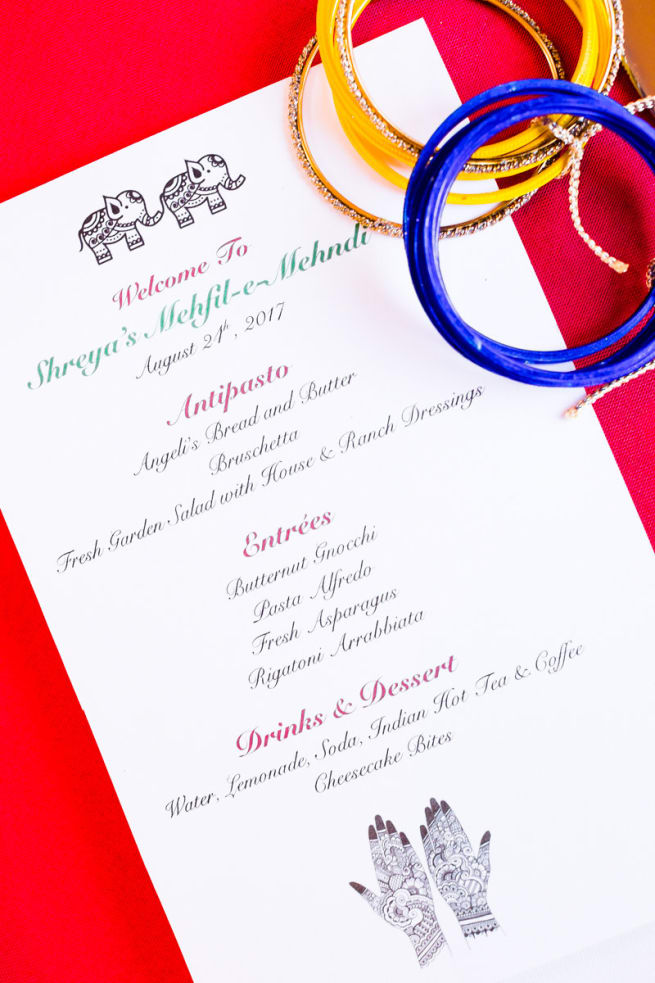 Welcome To
Shreya's Mehfil-e-Mehndi
August 24th, 2017
Antipasto
Angeli's Bread and Butter
Bruschetta
Fresh Garden Salad with House & Ranch Dressings
Entrées
Butternut Gnocchi
Pasta Alfredo
Fresh Asparagus
Rigatoni Arrabbiata
Drinks & Dessert
Water, Lemonade, Soda, Indian Hot Tea & Coffee
Cheesecake Bites